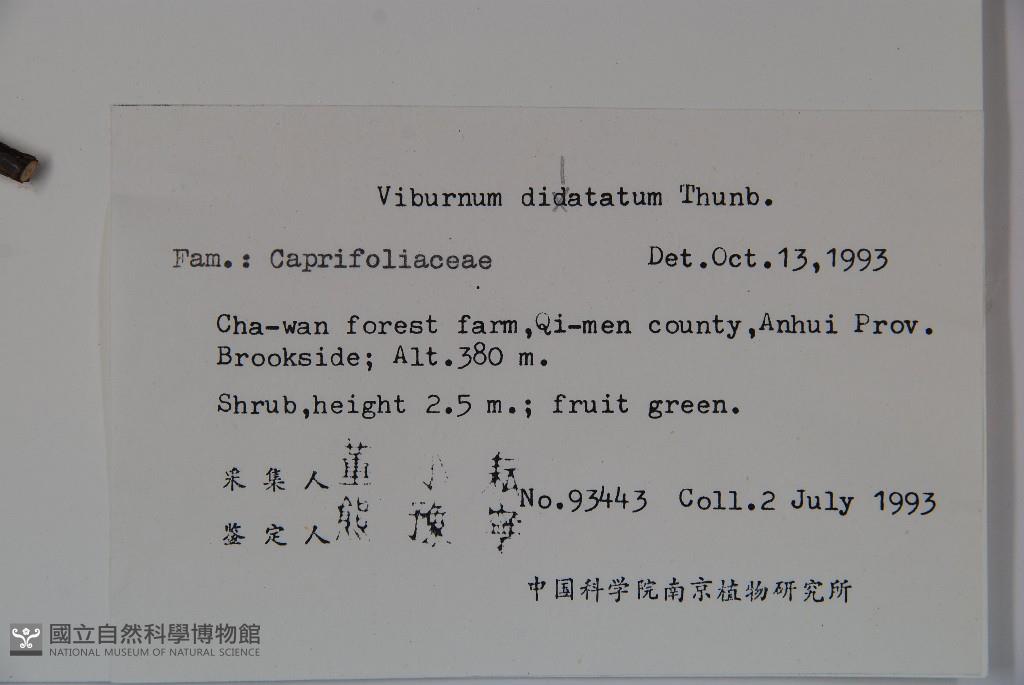 Viburnum didatatum Thunb.
Fam.: Caprifoliaceae Det.Oct.13,1993
Cha-wan forest farm,Qi-men county,Anhui Prov.
Brookside; Alt.380 m.
Shrub,height 2.5 m.; fruit green.
采集人 董 小 耘 No.93443 Coll.2 July 1993
鉴定人 熊 豫 宁
中国科学院南京植物研究所
國立自然科學博物館
NATIONAL MUSEUM OF NATURAL SCIENCE